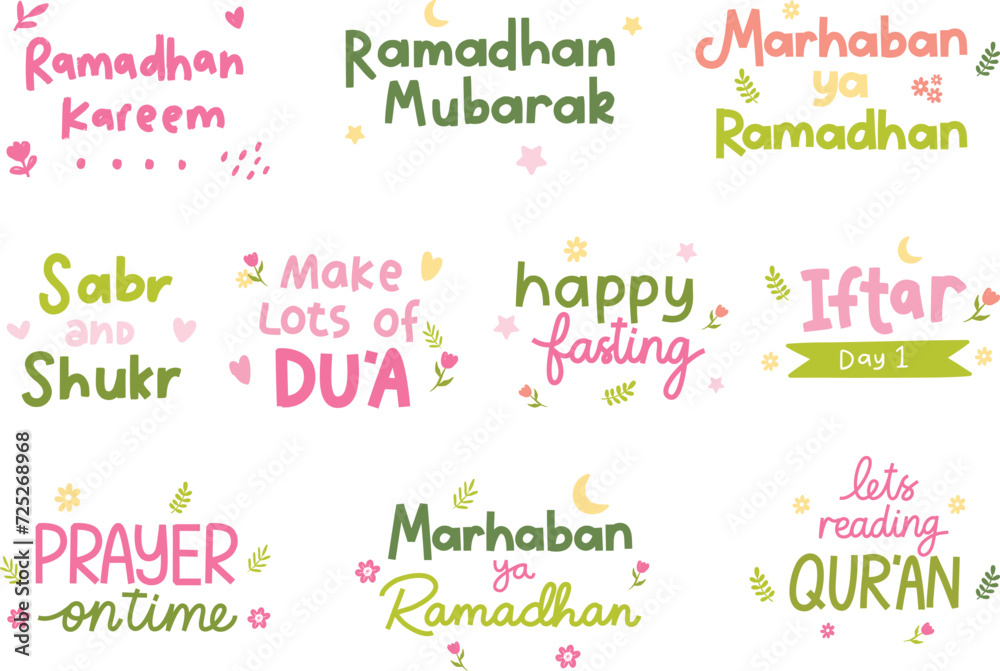 Ramadhan
Kareem
Ramadhan
Mubarak
Marhaban
ya
Ramadhan
Sabr
and
Shukr
Make
Lots of
DU'A
happy
fasting
Iftar
Day 1
PRAYER
on time
Marhaban
ya
Ramadhan
lets
reading
QUR'AN
Adobe Stock | #725268968